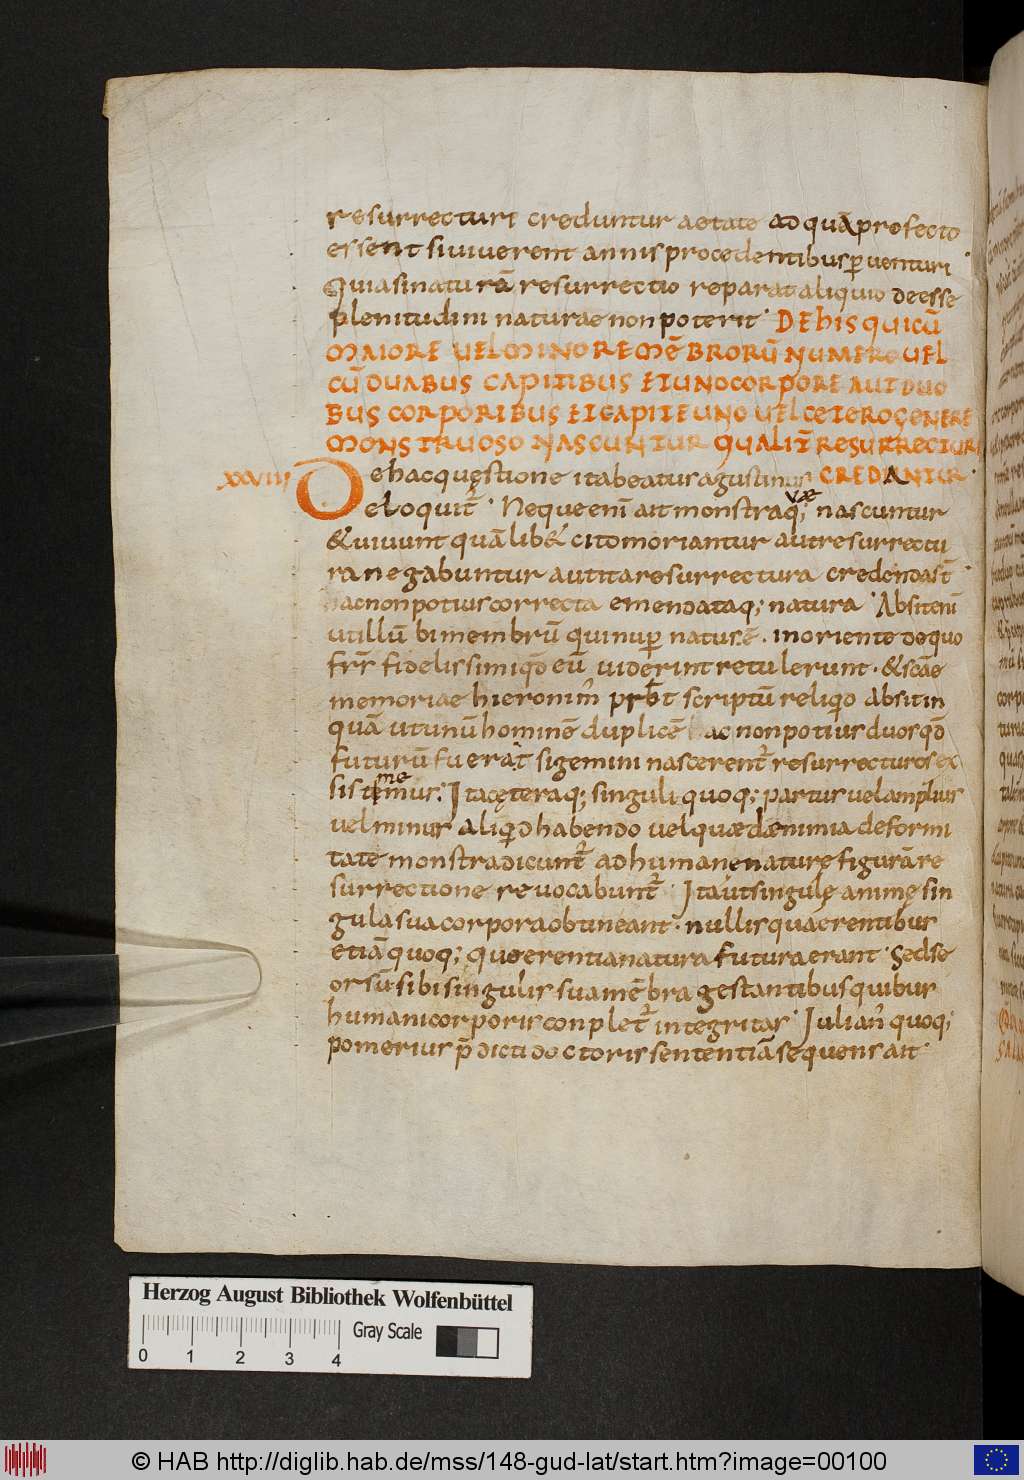 resurrecturi creduntur aetate ad quā profecto
essent si viverent annis procedentibus ꝑventuri
Quia si naturā resurrectio reparat aliquid deesse
plenitudini naturae non poterit· DE his QUI CŪ
MAIORE VEL MINORE MĒBRORŪ NUMERO VEL
CŪ DUABUS CAPITIBUS ET UNO CORPORE AUT DUO
BUS CORPORIBUS ET CAPITE UNO VEL CETERO GENERE
MONSTRUOSO NASCUNTUR QUALIT̄ RESURRECTURI
XXVIII De hac quęstione ita beatus agustinus CREDANTUR·
eloquit̄· Neque enī ait monstra q; væ nascuntur
& vivunt quā lib& cito moriantur aut resurrectu
ra negabuntur aut ita resurrectura credenda st̄·
hac non potius correcta emendataq; natura· Absit enī
ut illū bimembrū qui nuꝑ natus ē. in oriente de quo
frr̄ fidelissimi qđ eū viderint retulerunt· & scāe
memoriae hieronim̄ prƀt scriptū reliqđ absit in
quā ut unū hominē duplicē hac non potius duos qđ
futurū fuerat si gemini nascerent̄ resurrecturos ex
sistememus· Ita cętera q; singuli quoq; partus vel amplius
vel minus aliqđ habendo vel quædā nimia deformi
tate monstra dicunt̄ ad humane naturę figurā re
surrectione revocabunt̄· Ita ut singulę animę sin
gula sua corpora obtineant· nullis quaerentibus
etiā quoq; querentia natura futura erant· Sed se
orsū sibi singulis sua mēbra gestantibus quibus
humani corporis conplet̄ integritas· Julian̄ quoq;
pomerius p̄dicti doctoris sententiā sequens ait·
Herzog August Bibliothek Wolfenbüttel
Gray Scale
0 1 2 3 4
© HAB http://diglib.hab.de/mss/148-gud-lat/start.htm?image=00100